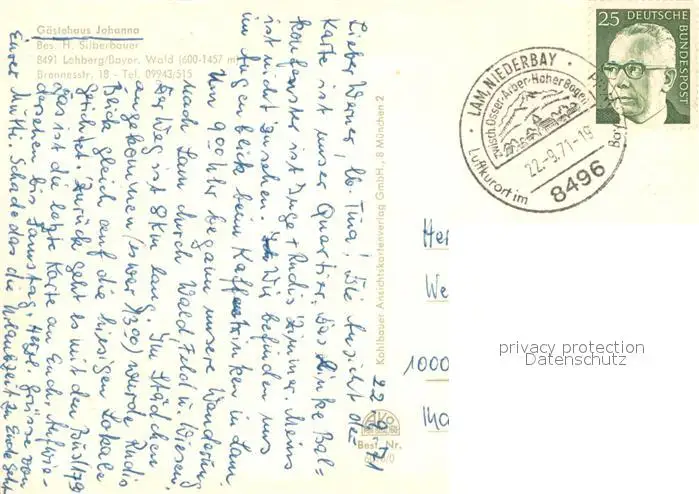 Gästehaus Johanna
Bes. H. Silberbauer
8491 Lohberg/Bayer. Wald (600-1457 m)
Brennesstr. 18 - Tel. 09943/515
25 DEUTSCHE
BUNDESPOST
LAM, NIEDERBAY.
zwisch. Osser-Arber-Hoher Bogen
22.-9.71-19
Luftkurort im
8496
Kohlbauer Ansichtskartenverlag GmbH., 8 München 2
AKO
Best. Nr.
22.9.71
Lieber Werner, lb. Tina! Die Ansicht der
Karte ist unser Quartier. Das linke Bal-
konfenster ist Inge + Rudis Zimmer. Meins
ist nicht zusehen. Wir befinden uns
im Augenblick beim Kaffeetrinken in Lam.
Um 9 00 Uhr begann unsere Wanderung
nach Lam durch Wald, Feld u. Wiesen.
Der Weg ist 8 km lang. Im Städchen
angekommen (es war 13 00) wurde Rudis
Blick gleich auf die hiesigen Lokale
gerichtet. Zurück geht es mit den Bus (17 9
Das ist die letzte Karte an Euch. Aufwie-
dersehen bis Samstag. Herzl. Grüsse von
Eurer Mutti. Schade das die Urlaubszeit zu Ende geht
1000
privacy protection
Datenschutz